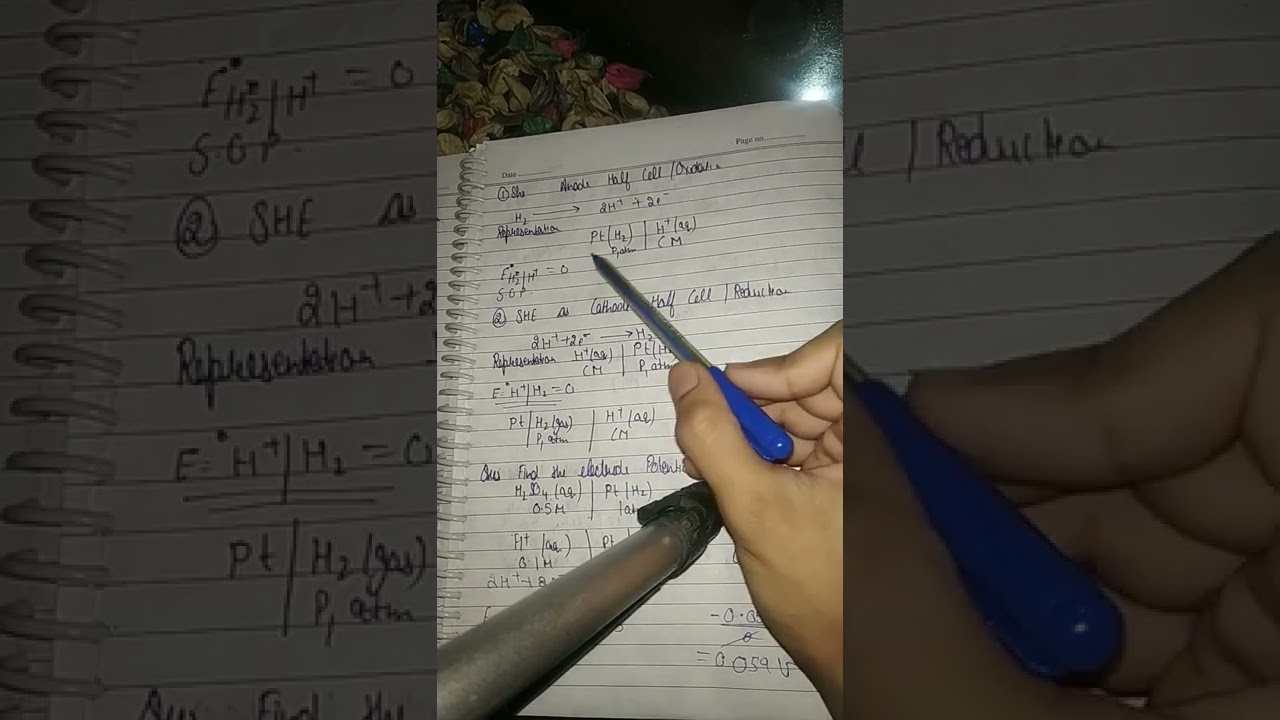 Page no.
Date
① She Anode Half Cell / Oxidation
H₂ → 2H⁺ + 2e⁻
Representation Pt(H₂) | H⁺(aq)
P₁atm CM
E°H₂|H⁺ = 0
S.O.P.
② SHE as Cathode Half Cell / Reduction
2H⁺+2e⁻ → H₂
Representation H⁺(aq) | Pt(H₂
CM P₁ atm
E° H⁺|H₂ = 0
Pt | H₂(gas) | H⁺(aq)
P₁ atm CM
Ques Find the electrode Potential
H₂SO₄(aq) | Pt|H₂)
0.5M 1at
H⁺ (aq) | Pt
0.1M
2H⁺+2e⁻
-0.05
= 0.059 V